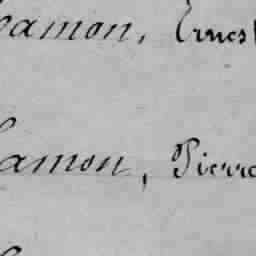 hamon, Ernest
hamon, Pierre